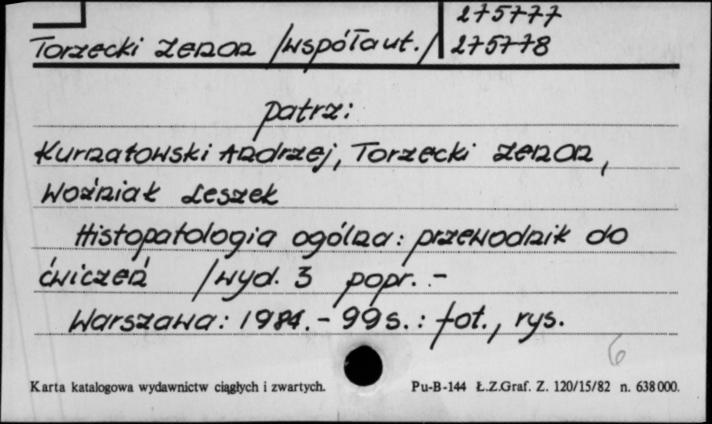 275777
Torzecki Zenon /współaut./ 275778
patrz:
Kurnatowski Andrzej, Torzecki Zenon,
Woźniak Leszek
Histopatologia ogólna: przewodnik do
ćwiczeń /wyd. 3 popr. -
Warszawa: 1984. - 99 s.: fot., rys.
6
Karta katalogowa wydawnictw ciągłych i zwartych. Pu-B-144 Ł.Z.Graf. Z. 120/15/82 n. 638000.